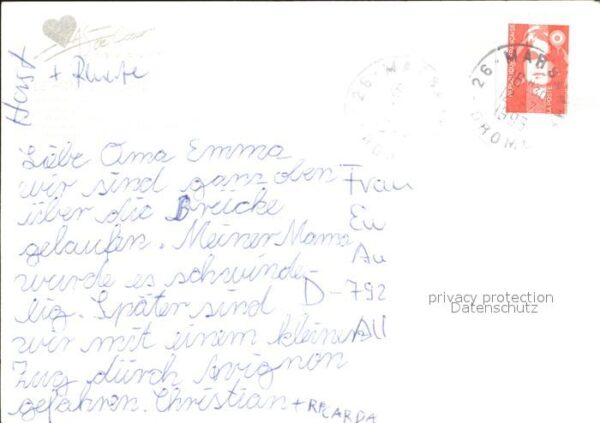 Horst
+ Renate
Liebe Oma Emma
wir sind ganz oben
über die Brücke
gelaufen. Meiner Mama
wurde es schwinde-
lig. Später sind
wir mit einem kleinen
Zug durch Avignon
gefahren. Christian + RICARDA
Frau
Eu
Au
D-792
All
26-MARS
DROME
LA POSTE
privacy protection
Datenschutz